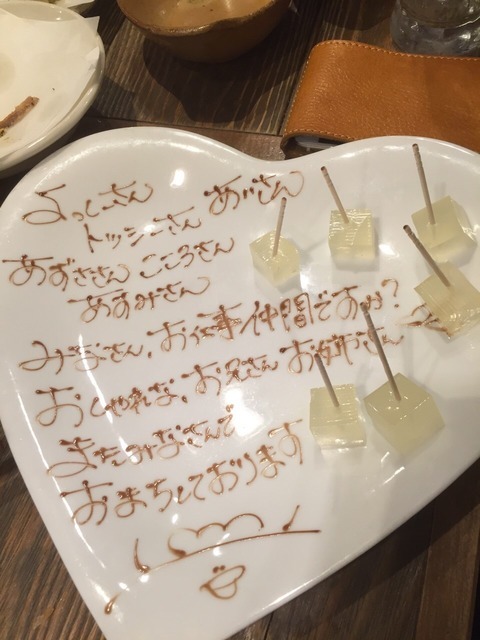 よっしさん あいさん
トッシーさん
あずささん こころさん
あすみさん
みなさん、お仕事仲間ですか?
おしゃれな、お兄さん
またみなさんで
おまちしております